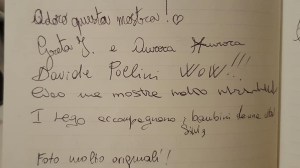 Adoro questa mostra! ♡
Greta J. e Aurora Aurora
Davide Pollini WOW!!!
una mostra molto
I Lego accompagnano i bambini da una vita
Foto molto originali!